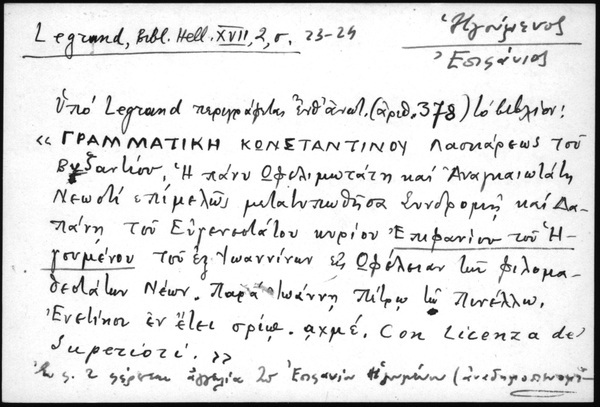 Legrand, Bibl. Hell. XVII, 2, σ. 23-24
Ἡγούμενος
Ἐπιφάνιος
Ὑπὸ Legrand περιγράφεται ἐνθ' ἀνωτ. (ἀριθ. 378) τὸ βιβλίον:
« ΓΡΑΜΜΑΤΙΚΗ ΚΩΝΣΤΑΝΤΙΝΟΥ Λασκάρεως τοῦ
Βυζαντίου, Ἡ πάνυ Ὠφελιμωτάτη καὶ Ἀναγκαιωτάτη
Νεωστὶ ἐπιμελῶς μετατυπωθῆσα Συνδρομῇ καὶ Δα-
πάνῃ τοῦ Εὐγενεστάτου κυρίου Ἐπιφανίου τοῦ Ἡ-
γουμένου τοῦ ἐξ Ἰωαννίνων εἰς Ὠφέλειαν τῶν φιλομα-
θεστάτων Νέων. Παρὰ Ἰωάννῃ Πέτρῳ τῷ Πινέλλῳ.
Ἐνετίῃσι ἐν ἔτει σρίῳ. αχμέ. Con Licenza de'
Superiori. »
φέρεται ἀγγελία Ἐπιφανίου Ἡγουμένου